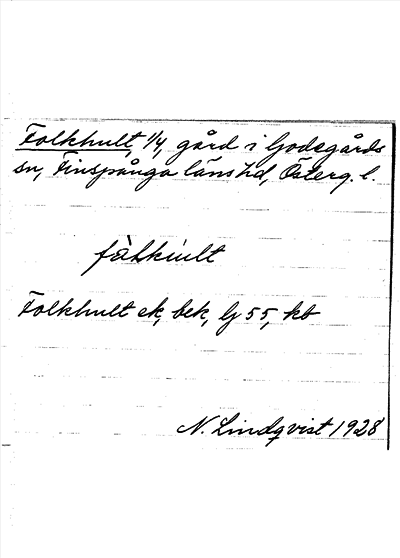 Folkhult, 1/4, gård i Godegårds
sn, Finspånga läns hd, Österg. l.
Folkhult ek, bek, lj 55, kb
N. Lindqvist 1928